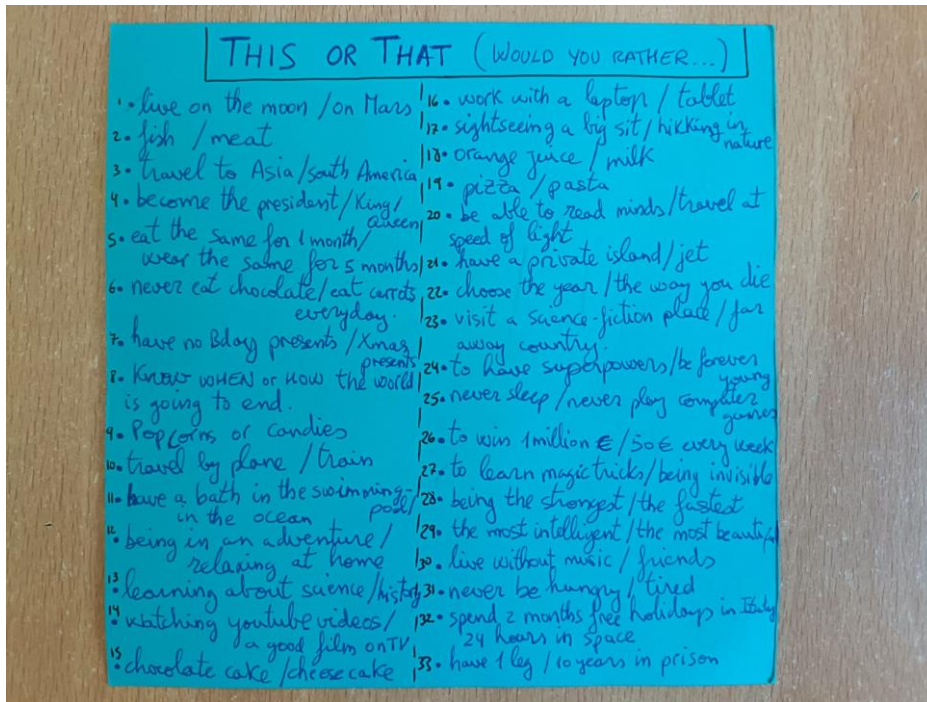 THIS OR THAT (WOULD YOU RATHER...)
1. live on the moon / on Mars
2. fish / meat
3. travel to Asia / south America
4. become the president / King /
Queen
5. eat the same for 1 month /
wear the same for 5 months
6. never eat chocolate / eat carrots
everyday.
7. have no Bday presents / Xmas
presents
8. KNOW WHEN or HOW the world
is going to end.
9. Popcorns or candies
10. travel by plane / train
11. have a bath in the swimming-
pool /
in the ocean
12. being in an adventure /
relaxing at home
13. learning about science / history
14. watching youtube videos /
a good film on TV
15. chocolate cake / cheese cake
16. work with a laptop / tablet
17. sightseeing a big sit / hikking in
nature
18. orange juice / milk
19. pizza / pasta
20. be able to read minds / travel at
speed of light
21. have a private island / jet
22. choose the year / the way you die
23. visit a science-fiction place / far
away country.
24. to have superpowers / be forever
young
25. never sleep / never play computer
games
26. to win 1 million € / 50 € every week
27. to learn magic tricks / being invisible
28. being the strongest / the fastest
29. the most intelligent / the most beautiful
30. live without music / friends
31. never be hungry / tired
32. spend 2 months free holidays in Italy
24 hours in space
33. have 1 leg / 10 years in prison